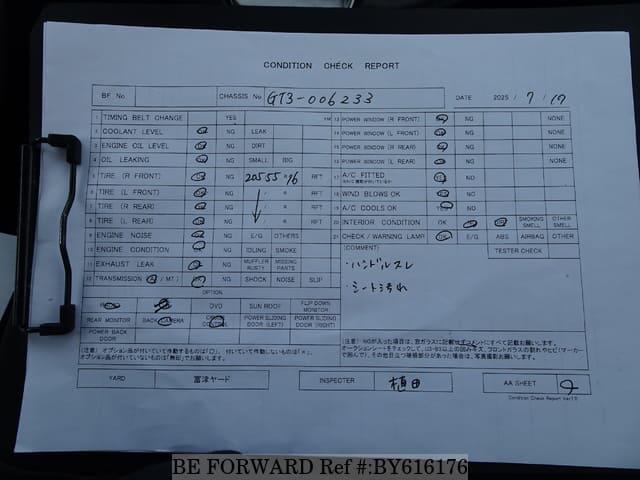 CONDITION CHECK REPORT
BF No. CHASSIS No GT3-006233 DATE 2025 / 7 / 17
1 TIMING BELT CHANGE YES KM 13 POWER WINDOW (R FRONT) NG NONE
2 COOLANT LEVEL NG LEAK 14 POWER WINDOW (L FRONT) NG NONE
3 ENGINE OIL LEVEL NG DIRT 15 POWER WINDOW (R REAR) NG NONE
4 OIL LEAKING NG SMALL BIG 16 POWER WINDOW (L REAR) NG NONE
5 TIRE (R FRONT) NG 20555 R16 RFT 17 A/C FITTED YES NG
6 TIRE (L FRONT) NG / R RFT 18 WIND BLOWS OK YES NG
7 TIRE (R REAR) NG / R RFT 19 A/C COOLS OK YES NG
8 TIRE (L REAR) NG / R RFT 20 INTERIOR CONDITION OK SMOKING SMELL OTHER SMELL
9 ENGINE NOISE NG E/G OTHERS 21 CHECK / WARNING LAMP OK E/G ABS AIRBAG OTHER
10 ENGINE CONDITION NG IDLING SMOKE (COMMENT) TESTER CHECK
11 EXHAUST LEAK NG MUFFLER RUSTY MISSING PANTS
12 TRANSMISSION (A / MT) NG SHOCK NOISE SLIP
・ハンドルスレ
・シート汚れ
OPTION
DVD SUN ROOF FLIP DOWN MONITOR
REAR MONITOR BACK CAMERA CRUISE CONTROL POWER SLIDING DOOR (LEFT) POWER SLIDING DOOR (RIGHT)
POWER BACK DOOR
(注意) オプション品が付いていて作動するものは「○」、付いていて作動しないものは「×」、
オプション品が付いていないものは「無印」でお願いします。
(注意) NGが入った場合は、窓ガラスに記載せずコメントにすべて記載お願いします。
YARD 富津ヤード INSPECTER 植田 AA SHEET
Condition Check Report Ver11
BE FORWARD Ref #:BY616176